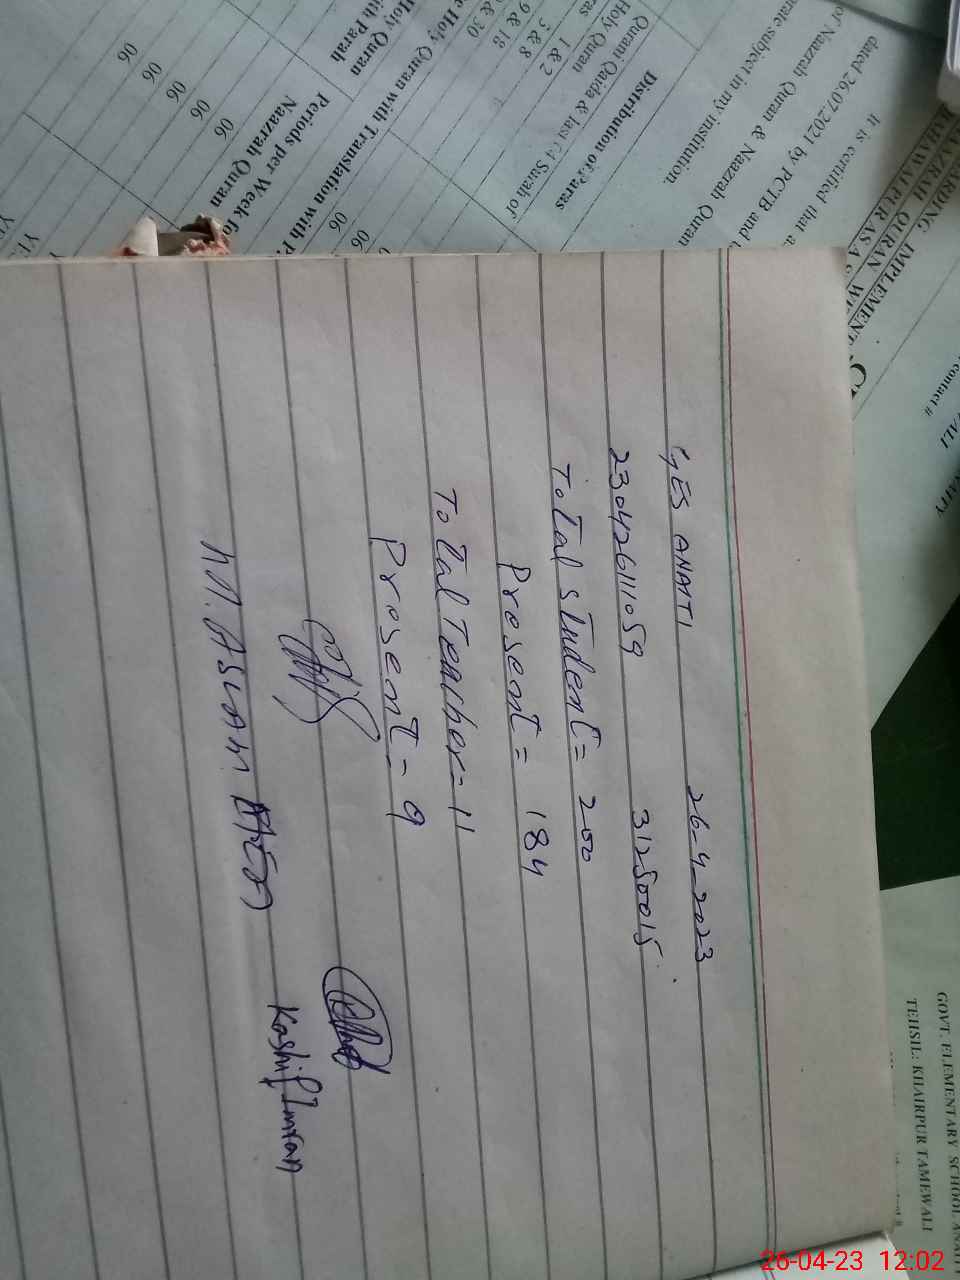 GES ANAATI 26-4-2023
230426111059 31250015
Total student = 200
Present = 184
Total Teacher = 11
Present = 9
M. ASLAM
Kashif Imran
dated 26.07.2021 by PCTB and
of Naazrah Quran & Naazrah Quran
rate subject in my institution.
It is certified that a
Distribution of Paras
Qurani Qaida & last 04 Surah of
Holy Quran
1 & 2
3 & 8
9 & 18
& 30
Holy Quran with Translation with P
Holy Quran
with Parah
Periods per Week fo
Naazrah Quran
06
06
06
06
06
06
RDING IMPLEMENT
NAZRAH QURAN
BAHAWALPUR AS A S
contact #
GOVT. ELEMENTARY SCHOOL ANAITY
TEHSIL: KHAIRPUR TAMEWALI
26-04-23 12:02